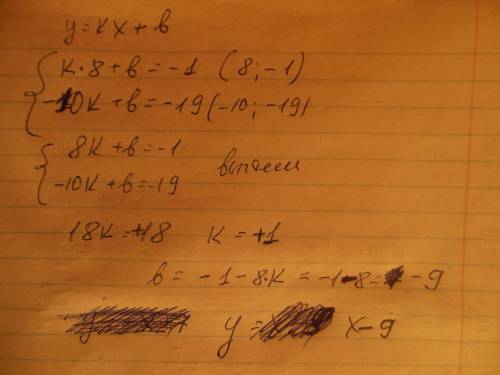 y = kx + b
k · 8 + b = -1 (8; -1)
-10k + b = -19 (-10; -19)
8k + b = -1
-10k + b = -19
18k = +18 k = +1
b = -1 - 8·k = -1 - 8 = -9
y = x - 9